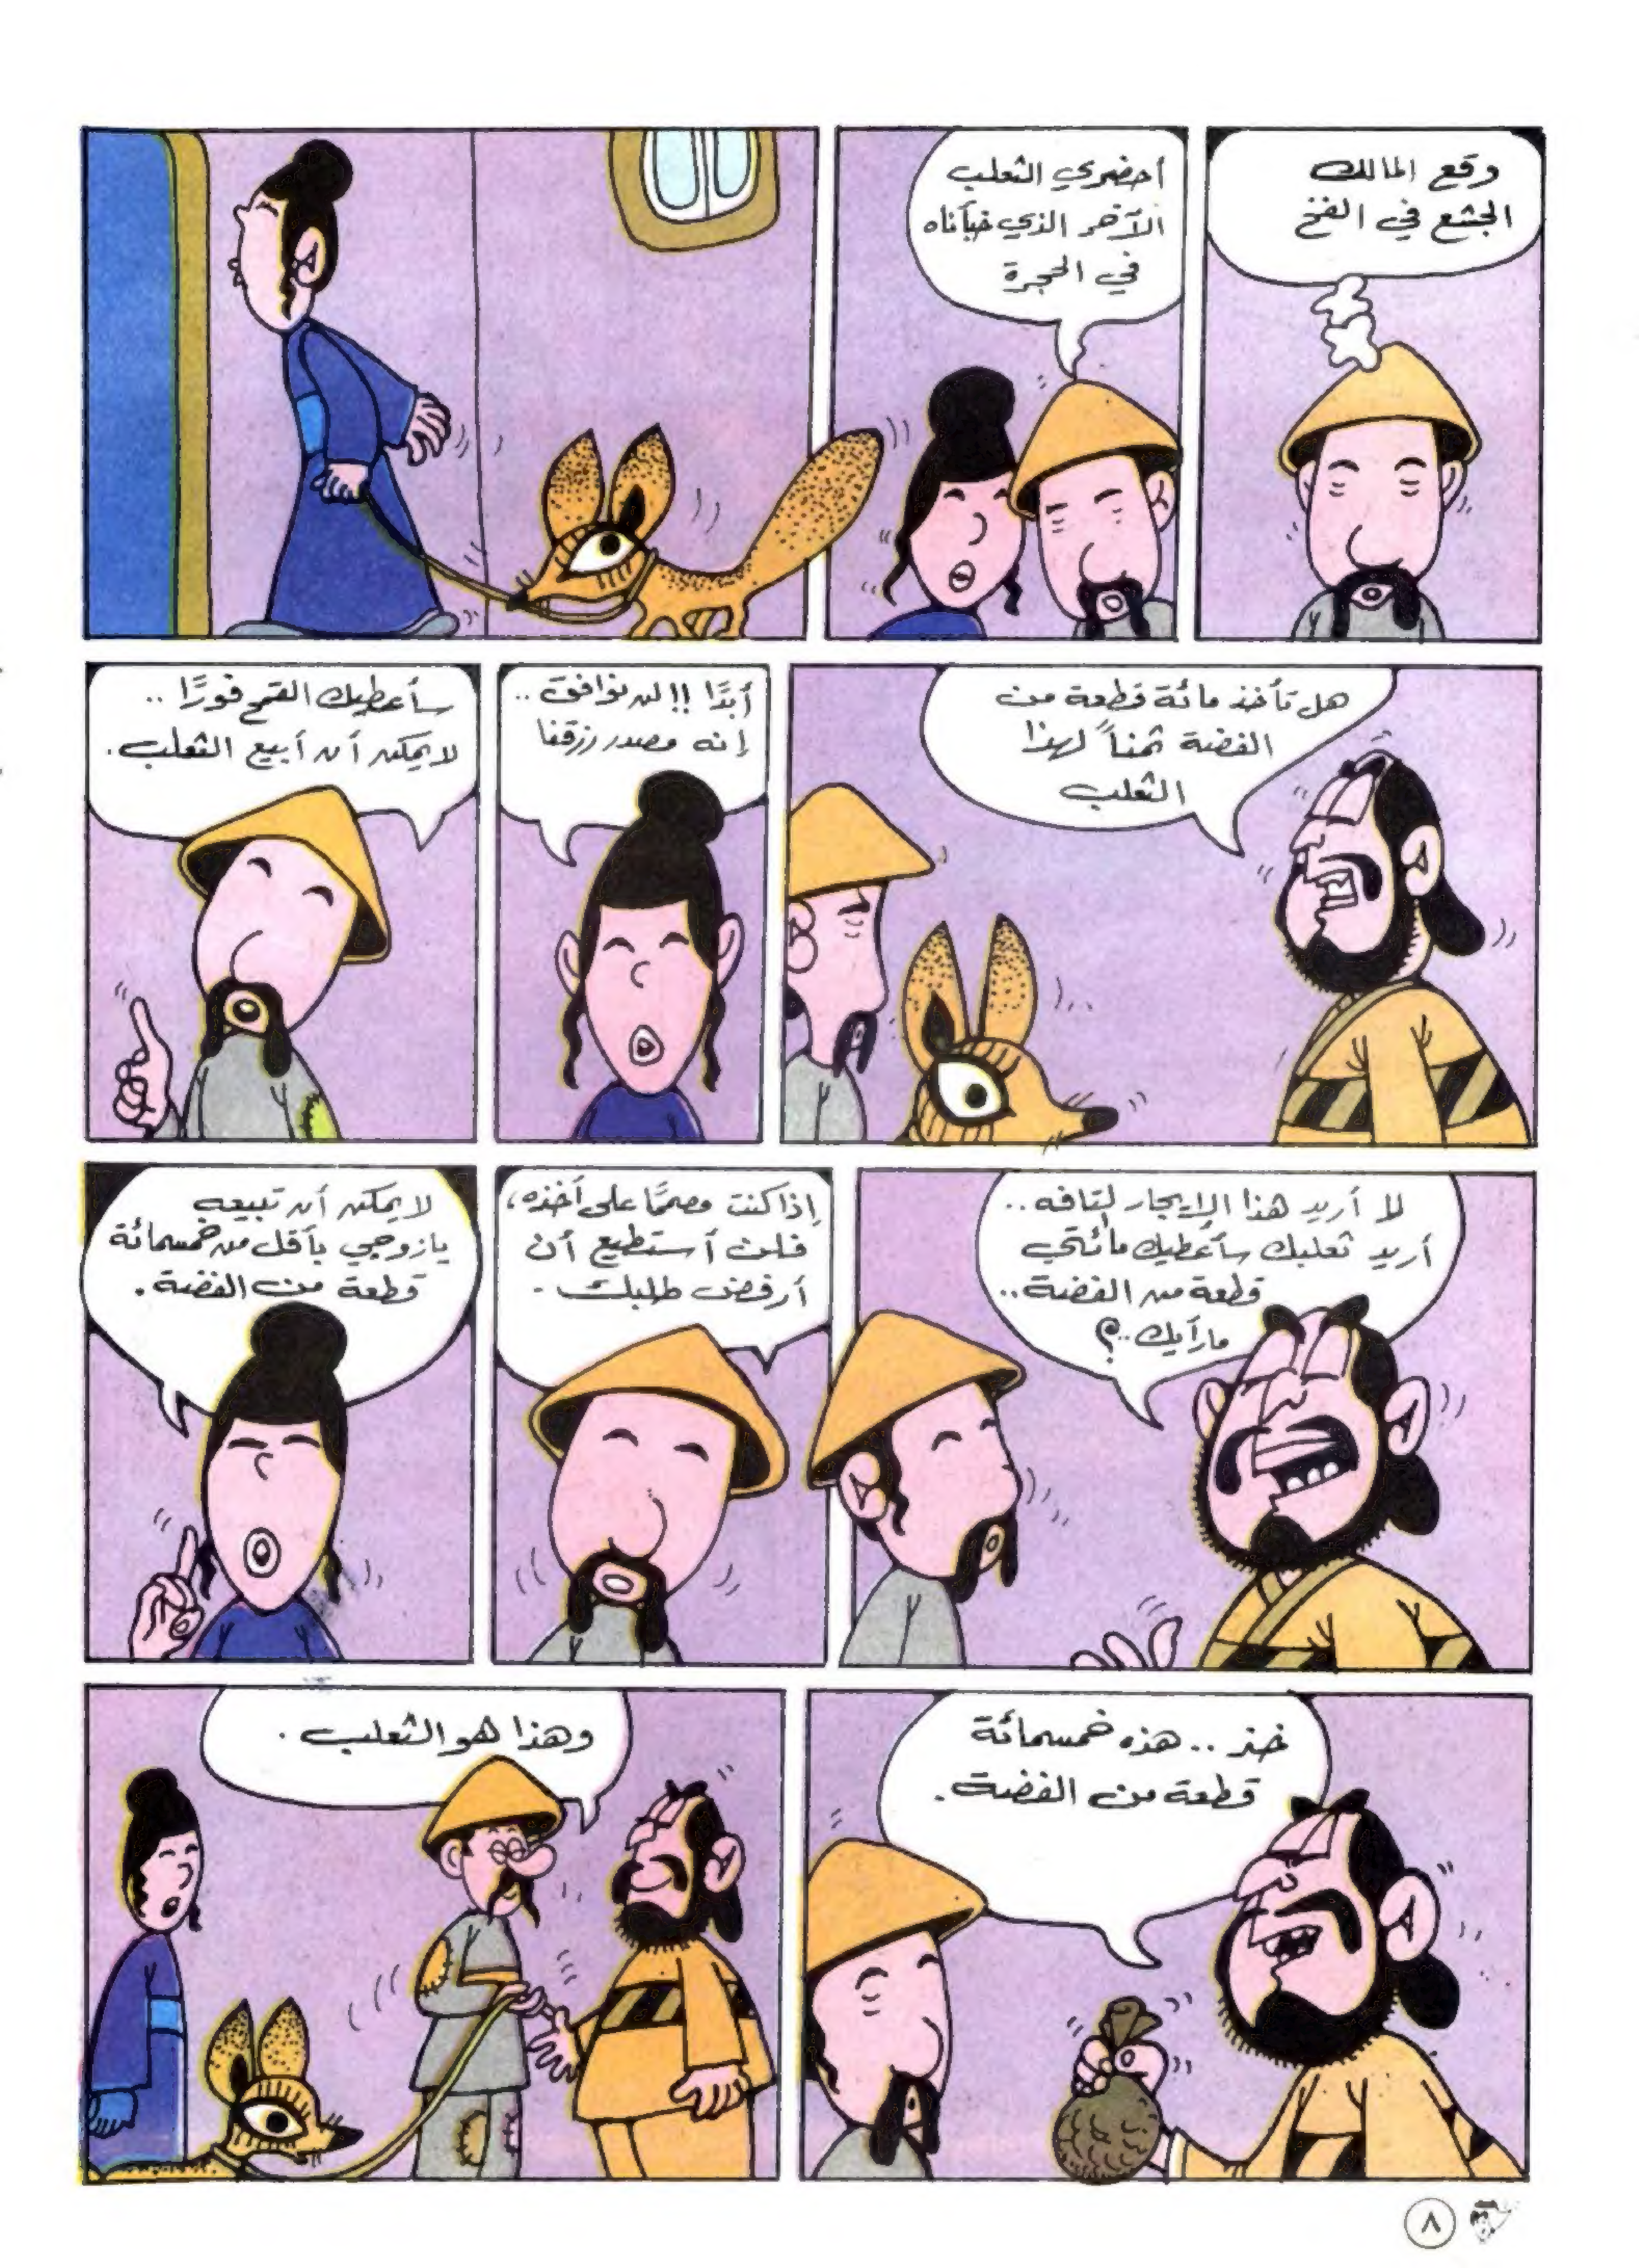 وقع المالك
الجشع في الفخ
أحضري الثعلب
الآخر الذي خبأناه
في الحجرة
هل تأخذ مائة قطعة من
الفضة ثمناً لهذا
الثعلب
أبدًا !! لن نوافق ..
إنه مصدر رزقنا
سأعطيك القمح فورًا ..
لا يمكن أن أبيع الثعلب.
لا أريد هذا الإيجار التافه ..
أريد ثعلبك سأعطيك مائتي
قطعة من الفضة ..
ما رأيك ..؟
إذا كنت مصممًا على أخذه،
فلن أستطيع أن
أرفض طلبك .
لا يمكن أن تبيعه
يا زوجي بأقل من خمسمائة
قطعة من الفضة .
خذ .. هذه خمسمائة
قطعة من الفضة .
وهذا هو الثعلب .
٨